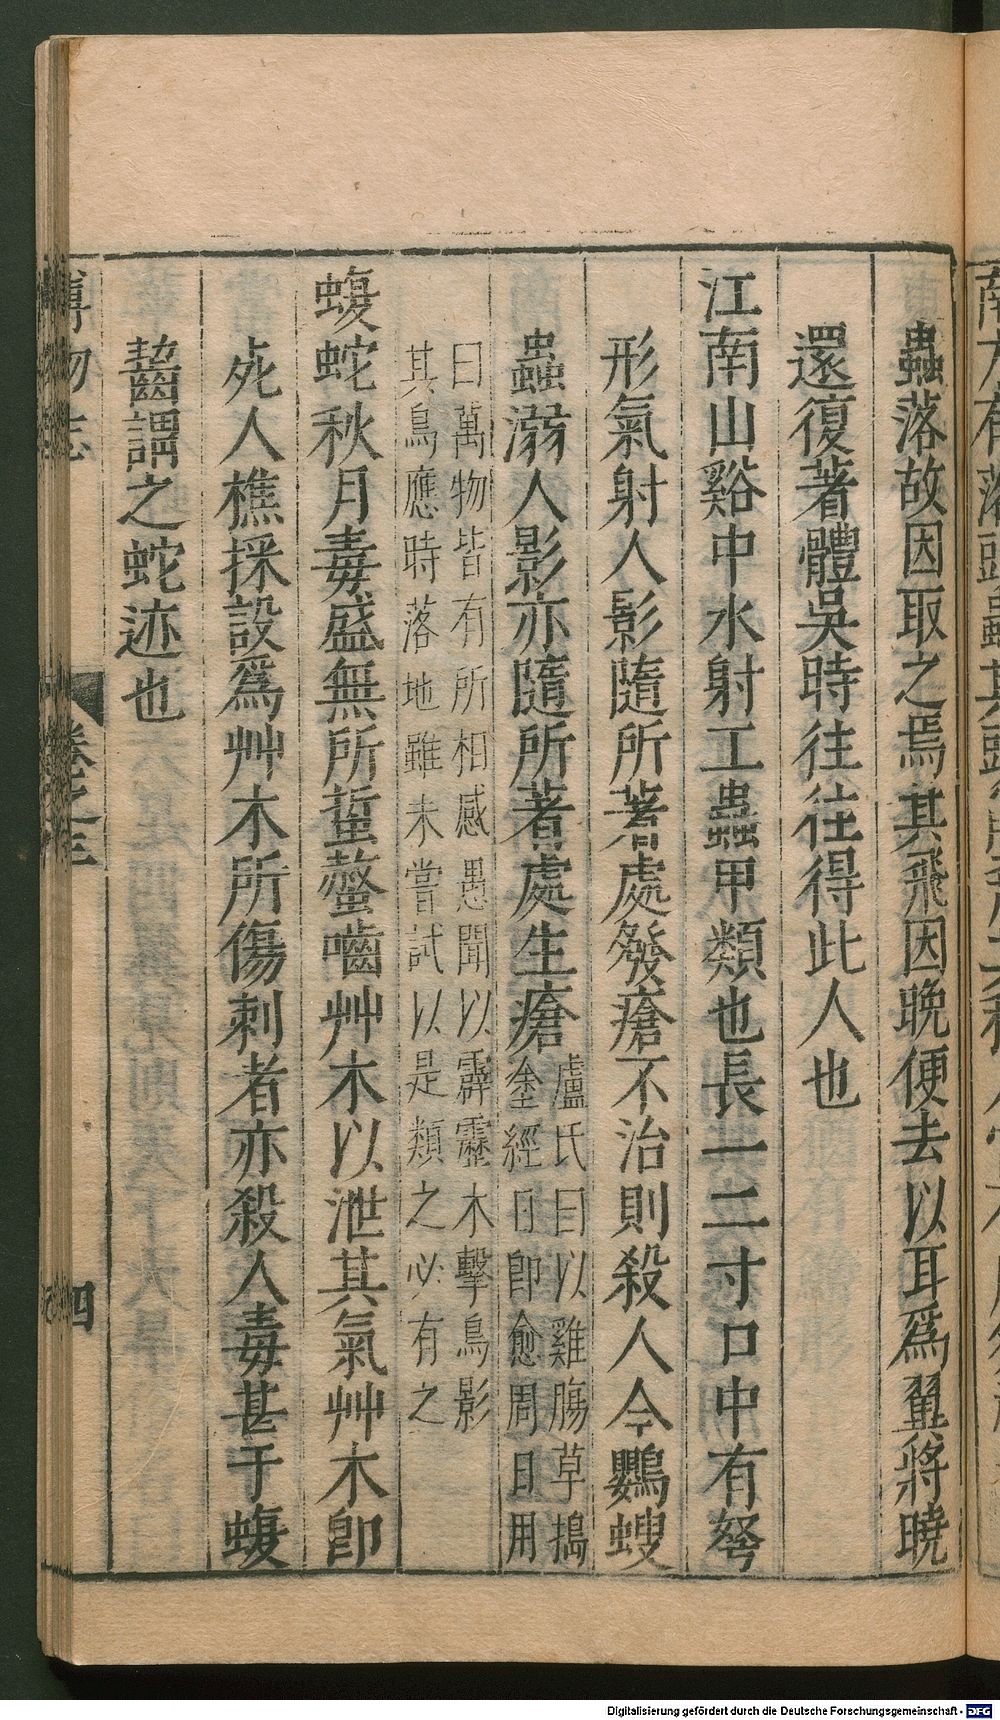 蟲落故因取之焉其飛因晚便去以耳爲翼將曉
還復著體吳時往往得此人也
江南山谿中水射工蟲甲類也長一二寸口中有弩
形氣射人影隨所著處發瘡不治則殺人今鸚螋
蟲溺人影亦隨所著處生瘡
盧氏曰以雞腸草搗
塗經日即愈周日用
曰萬物皆有所相感愚聞以霹靂木擊鳥影
其鳥應時落地雖未嘗試以是類之必有之
蝮蛇秋月毒盛無所蜇螫嚙艸木以泄其氣艸木卽
死人樵採設爲艸木所傷刺者亦殺人毒甚于蝮
齧謂之蛇迹也
博物志
卷之三
四
Digitalisierung gefördert durch die Deutsche Forschungsgemeinschaft - DFG